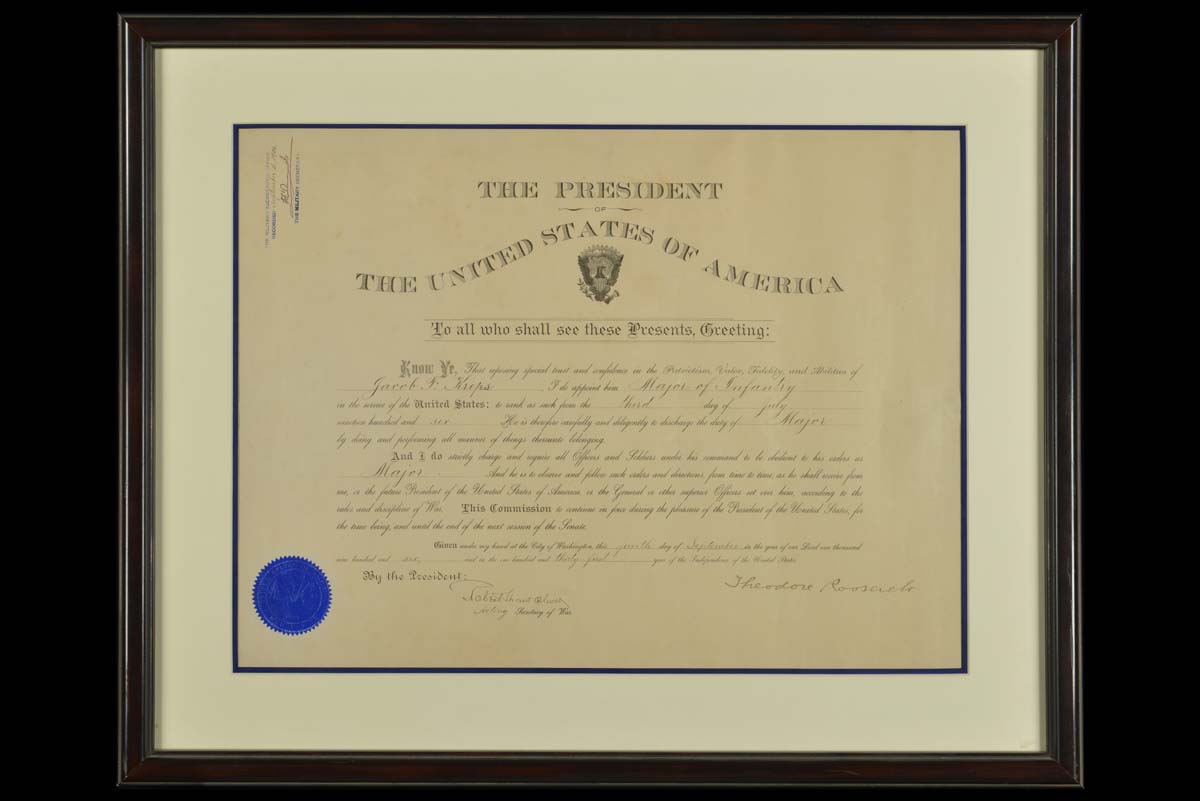 THE MILITARY SECRETARY'S OFFICE
RECORDED September 5, 1906
THE MILITARY SECRETARY.
THE PRESIDENT
OF
THE UNITED STATES OF AMERICA
To all who shall see these Presents, Greeting:
Know Ye, That reposing special trust and confidence in the Patriotism, Valor, Fidelity, and Abilities of
Jacob F. Kreps I do appoint him Major of Infantry
in the service of the United States: to rank as such from the third day of July
nineteen hundred and six He is therefore carefully and diligently to discharge the duty of Major
by doing and performing all manner of things thereunto belonging.
And I do strictly charge and require all Officers and Soldiers under his command to be obedient to his orders as
Major. And he is to observe and follow such orders and directions, from time to time, as he shall receive from
me, or the future President of the United States of America, or the General or other superior Officers set over him, according to the
rules and discipline of War. This Commission to continue in force during the pleasure of the President of the United States, for
the time being, and until the end of the next session of the Senate.
Given under my hand at the City of Washington, this fourth day of September in the year of our Lord one thousand
nine hundred and six, and in the one hundred and thirty-first year of the Independence of the United States.
By the President:
Theodore Roosevelt
Robert Shaw Oliver
Acting Secretary of War.